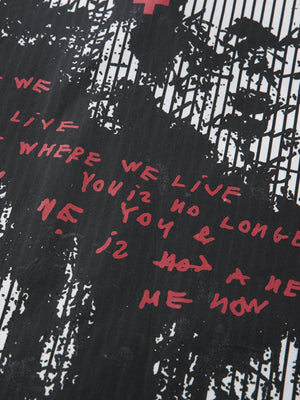 WE
LIVE
WHERE WE LIVE
YOU iZ NO LONGE
YOU &
iZ A ME
ME NOW